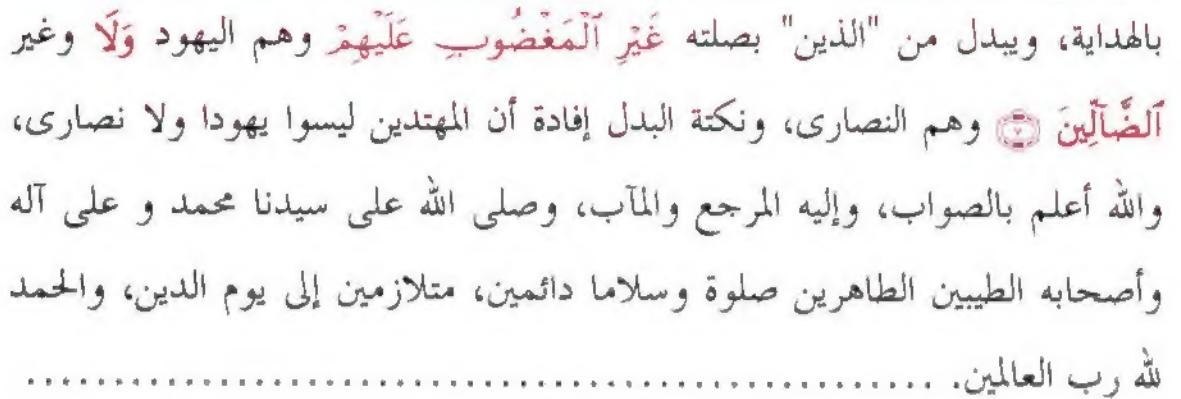 بالهداية، ويبدل من "الذين" بصلته غَيْرِ ٱلْمَغْضُوبِ عَلَيْهِمْ وهم اليهود وَلَا وغير
ٱلضَّآلِّينَ ۝٧ وهم النصارى، ونكتة البدل إفادة أن المهتدين ليسوا يهودا ولا نصارى،
والله أعلم بالصواب، وإليه المرجع والمآب، وصلى الله على سيدنا محمد و على آله
وأصحابه الطيبين الطاهرين صلوة وسلاما دائمين، متلازمين إلى يوم الدين، والحمد
لله رب العالمين. ......................................................